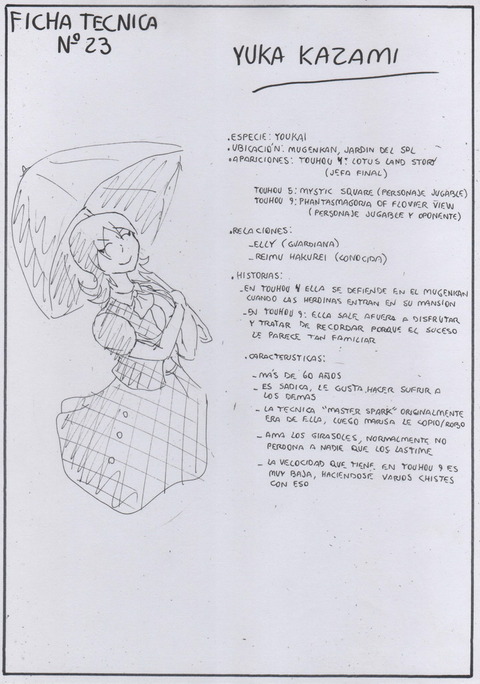 FICHA TECNICA
Nº 23
YUKA KAZAMI
. ESPECIE: YOUKAI
. UBICACIÓN: MUGENKAN, JARDIN DEL SOL
. APARICIONES: TOUHOU 4: LOTUS LAND STORY
(JEFA FINAL)
TOUHOU 5: MYSTIC SQUARE (PERSONAJE JUGABLE)
TOUHOU 9: PHANTASMAGORIA OF FLOVIER VIEW
(PERSONAJE JUGABLE Y OPONENTE)
. RELACIONES:
_ ELLY (GUARDIANA)
_ REIMU HAKUREI (CONOCIDA)
. HISTORIAS:
_ EN TOUHOU 4 ELLA SE DEFIENDE EN EL MUGENKAN
CUANDO LAS HEROINAS ENTRAN EN SU MANSION
_ EN TOUHOU 9: ELLA SALE AFUERA A DISFRUTAR
Y TRATAR DE RECORDAR PORQUE EL SUCESO
LE PARECE TAN FAMILIAR
. CARACTERISTICAS:
_ MÁS DE 60 AÑOS
_ ES SADICA, LE GUSTA HACER SUFRIR A
LOS DEMAS
_ LA TECNICA "MASTER SPARK" ORIGINALMENTE
ERA DE ELLA, LUEGO MARISA LE COPIO/ROBO
_ AMA LOS GIRASOLES, NORMALMENTE NO
PERDONA A NADIE QUE LOS LASTIME
_ LA VELOCIDAD QUE TIENE EN TOUHOU 9 ES
MUY BAJA, HACIENDOSE VARIOS CHISTES
CON ESO